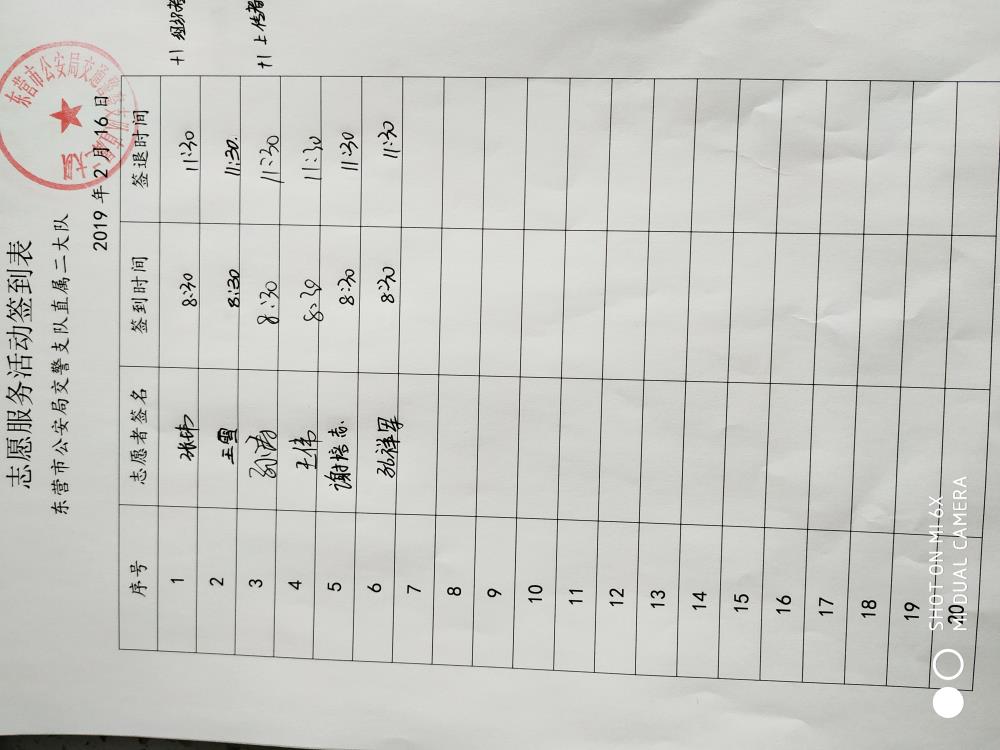 志愿服务活动签到表
东营市公安局交警支队直属二大队
2019 年 2 月 16 日
东营市公安局交通
序号 志愿者签名 签到时间 签退时间
1 张玮 8:30 11:30 +1 组织者
2 王雪 8:30 11:30
3 孙涛 8:30 11:30 +1 上传者
4 王伟 8:30 11:30
5 谢培志 8:30 11:30
6 孔祥军 8:30 11:30
7
8
9
10
11
12
13
14
15
16
17
18
19
20
SHOT ON MI 6X
MI DUAL CAMERA